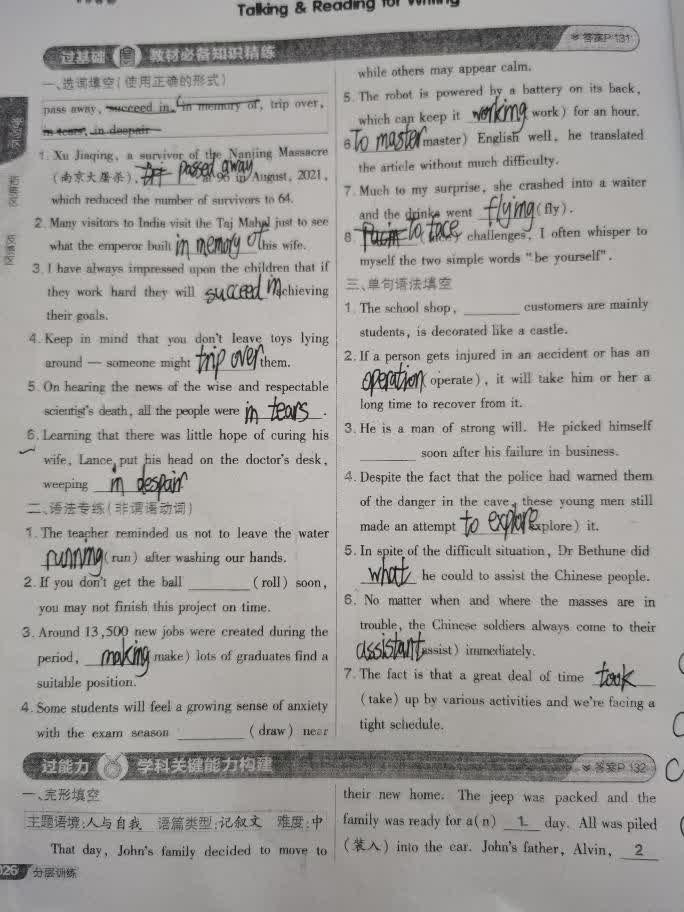 Talking & Reading for Writing
过基础 教材必备知识精练
答案P 131
一、选词填空(使用正确的形式)
pass away, succeed in, in memory of, trip over,
in tears, in despair
1. Xu Jiaqing, a survivor of the Nanjing Massacre
(南京大屠杀), passed away at 96 in August, 2021,
which reduced the number of survivors to 64.
2. Many visitors to India visit the Taj Mahal just to see
what the emperor built in memory of his wife.
3. I have always impressed upon the children that if
they work hard they will succeed in achieving
their goals.
4. Keep in mind that you don't leave toys lying
around — someone might trip over them.
5. On hearing the news of the wise and respectable
scientist's death, all the people were in tears.
6. Learning that there was little hope of curing his
wife, Lance put his head on the doctor's desk,
weeping in despair
二、语法专练(非谓语动词)
1. The teacher reminded us not to leave the water
running (run) after washing our hands.
2. If you don't get the ball ______ (roll) soon,
you may not finish this project on time.
3. Around 13,500 new jobs were created during the
period, making make) lots of graduates find a
suitable position.
4. Some students will feel a growing sense of anxiety
with the exam season ______ (draw) near
while others may appear calm.
5. The robot is powered by a battery on its back,
which can keep it working work) for an hour.
6 To master master) English well, he translated
the article without much difficulty.
7. Much to my surprise, she crashed into a waiter
and the drinks went flying (fly).
8. To face challenges, I often whisper to
myself the two simple words "be yourself".
三、单句语法填空
1. The school shop, ______ customers are mainly
students, is decorated like a castle.
2. If a person gets injured in an accident or has an
operation (operate), it will take him or her a
long time to recover from it.
3. He is a man of strong will. He picked himself
______ soon after his failure in business.
4. Despite the fact that the police had warned them
of the danger in the cave, these young men still
made an attempt to explore explore) it.
5. In spite of the difficult situation, Dr Bethune did
what he could to assist the Chinese people.
6. No matter when and where the masses are in
trouble, the Chinese soldiers always come to their
assistant assist) immediately.
7. The fact is that a great deal of time took
(take) up by various activities and we're facing a
tight schedule.
过能力 学科关键能力构建
答案P 132
一、完形填空
主题语境:人与自我 语篇类型:记叙文 难度:中
That day, John's family decided to move to
their new home. The jeep was packed and the
family was ready for a(n) 1 day. All was piled
(装入) into the car. John's father, Alvin, 2
026 分层训练